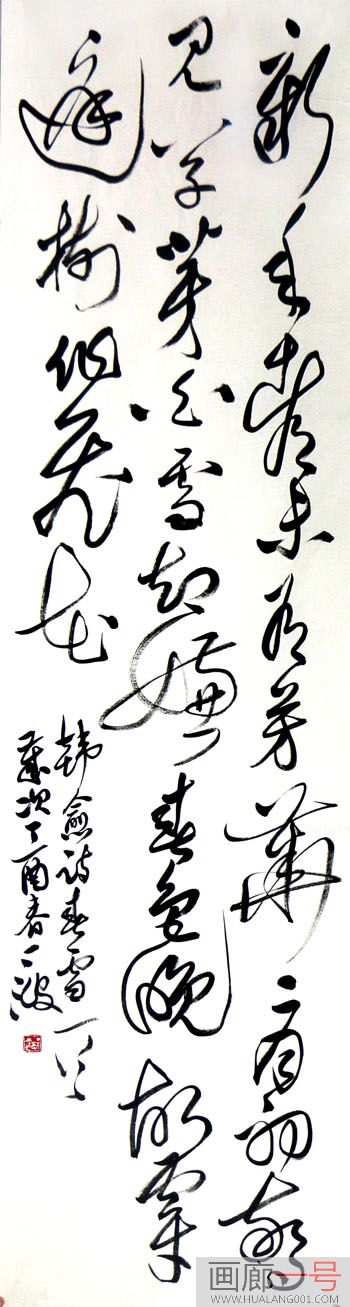 新年都未有芳華二月初驚
見草芽白雪却嫌春色晚故穿
庭樹作飛花
韓愈詩春雪一首
歲次丁酉春一波
画廊一号
WWW.HUALANG001.COM